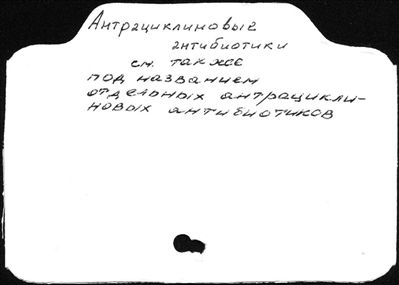 Антрациклиновые
антибиотики
см. также
под названием
отдельных антрацикли-
новых антибиотиков